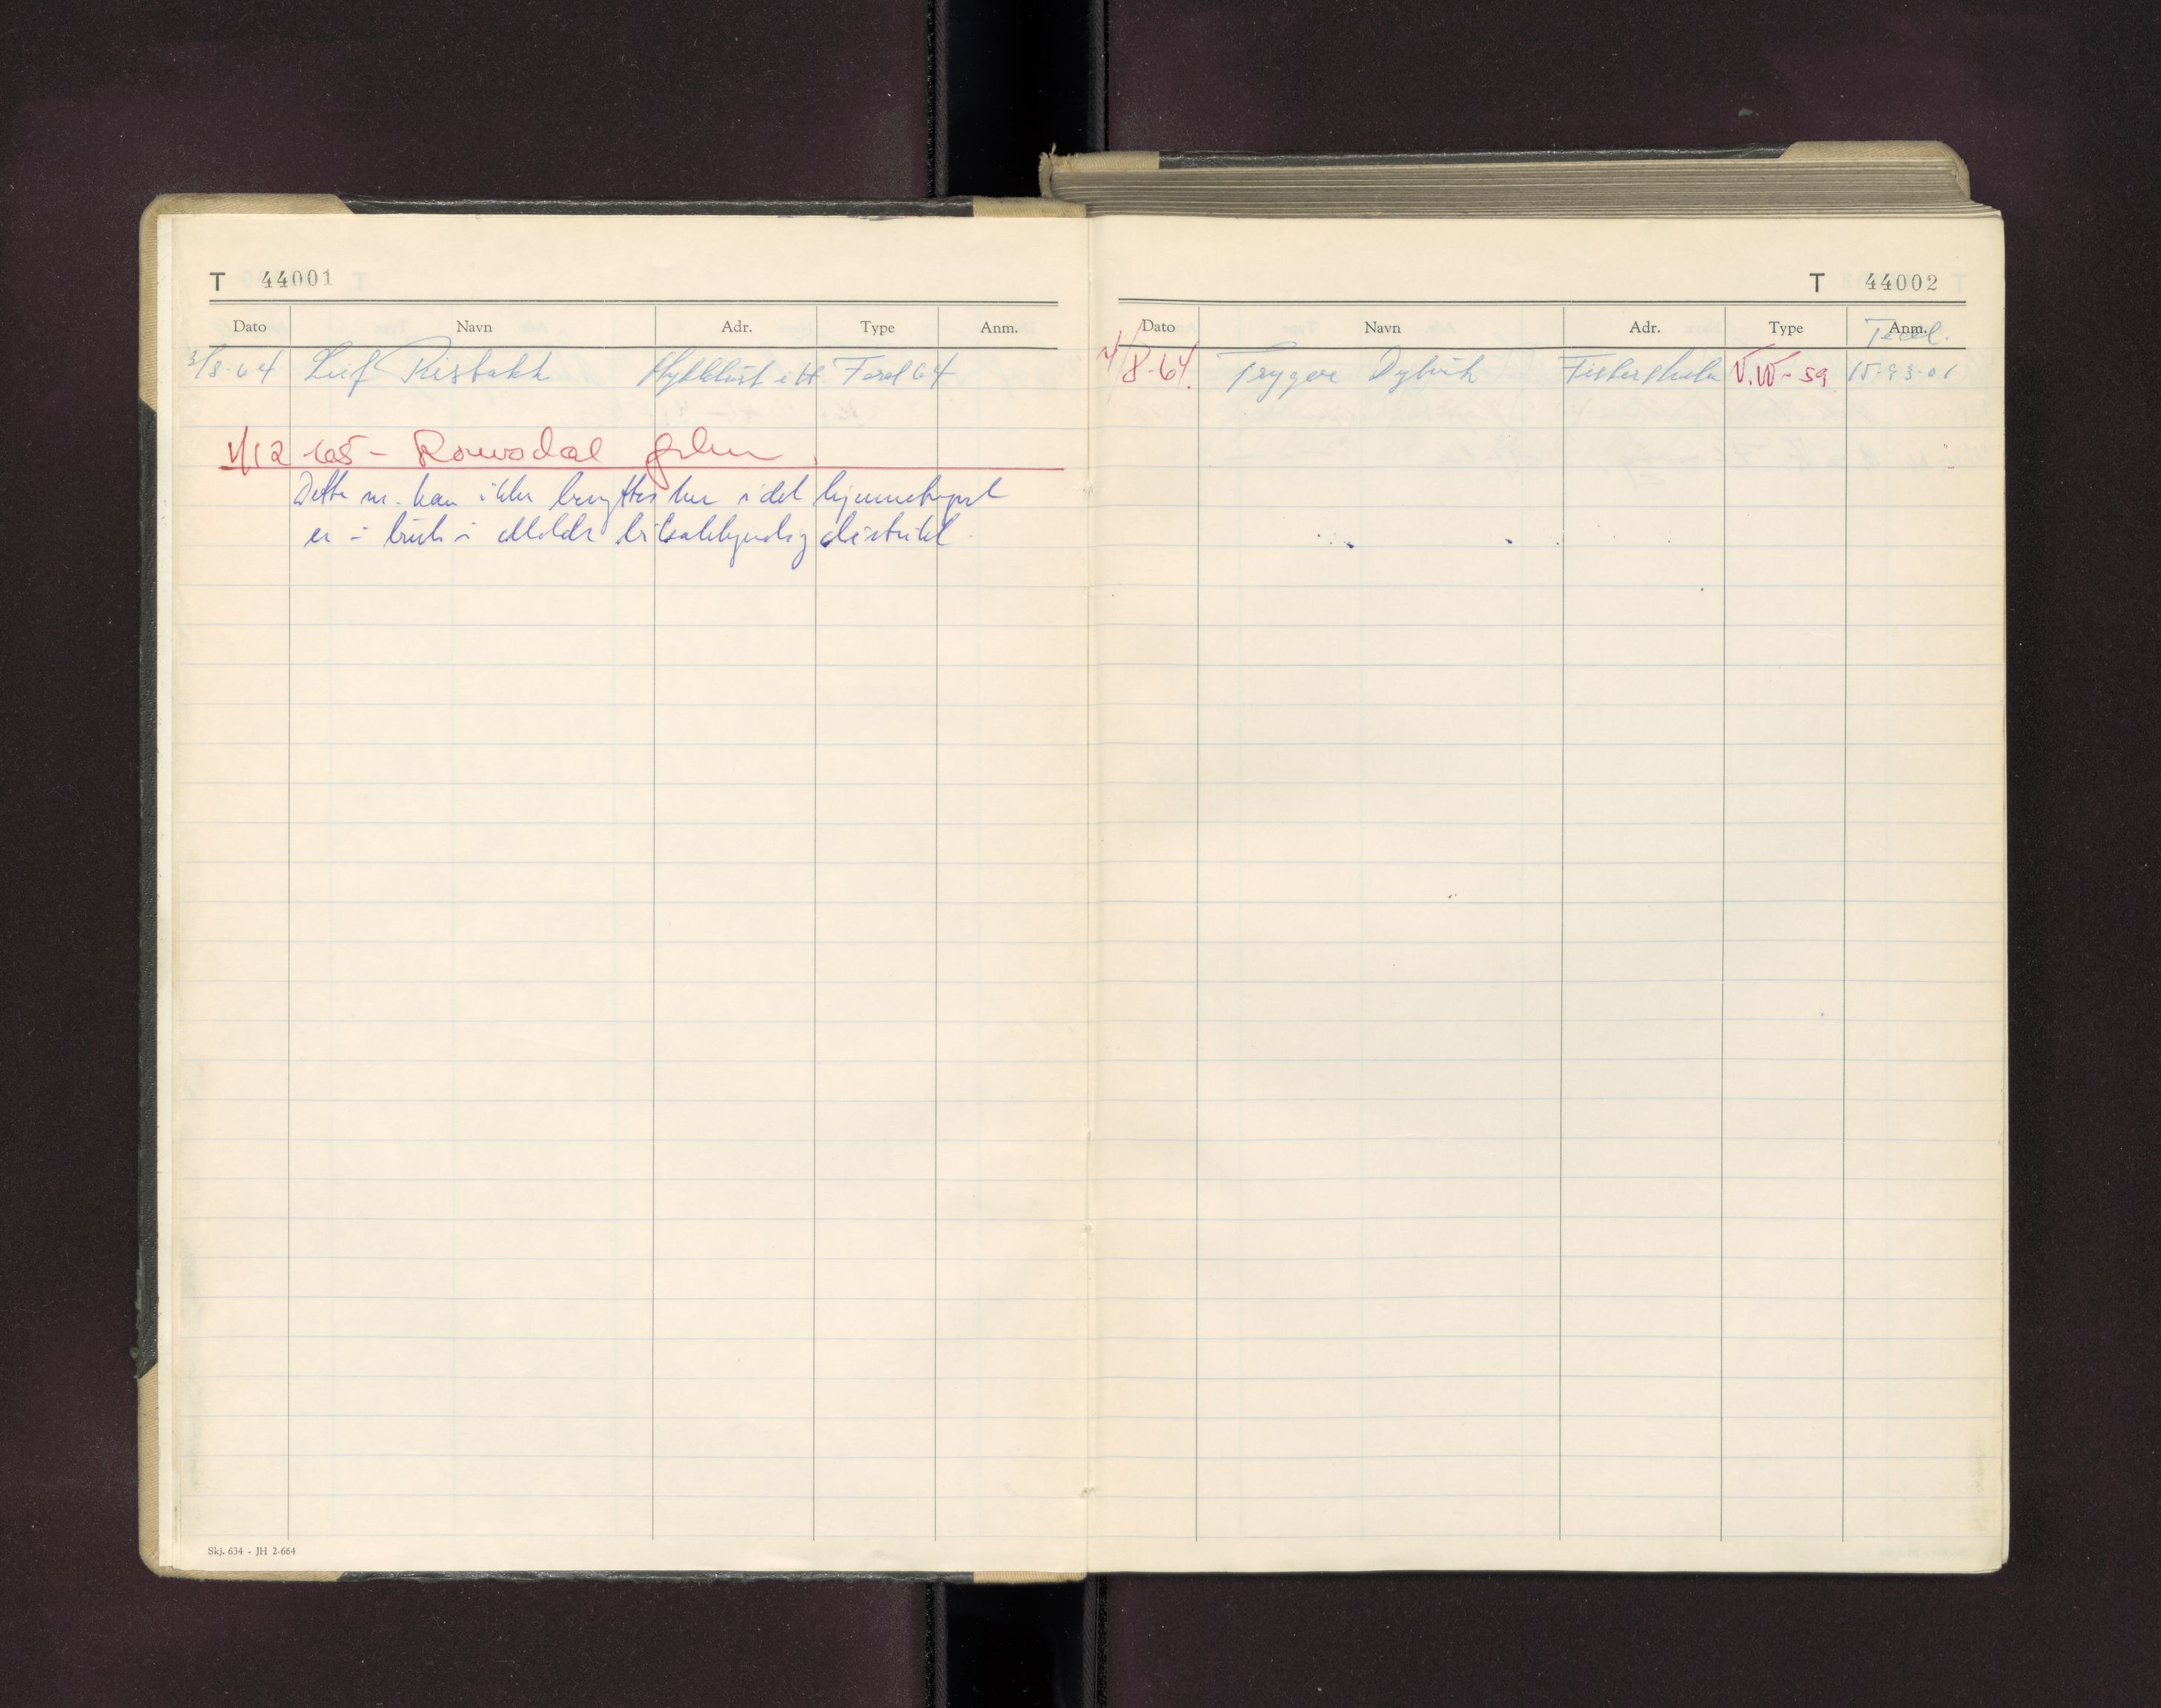 T 44001
Dato Navn Adr. Type Anm.
3/8-64 Leif Risbakk Myklebust i H. Ford 64
1/12-65 - Romsdal
Dette nr. kan ikke benyttes her idet kjennetegnet
er i bruk i Molde bilsakkyndig distrikt.
Skj. 634 - JH 2-664
T 44002
Dato Navn Adr. Type Anm.
Tedl.
4/8-64. Trygve Dybvik Fiskerstrand V.W-59 15-93-01